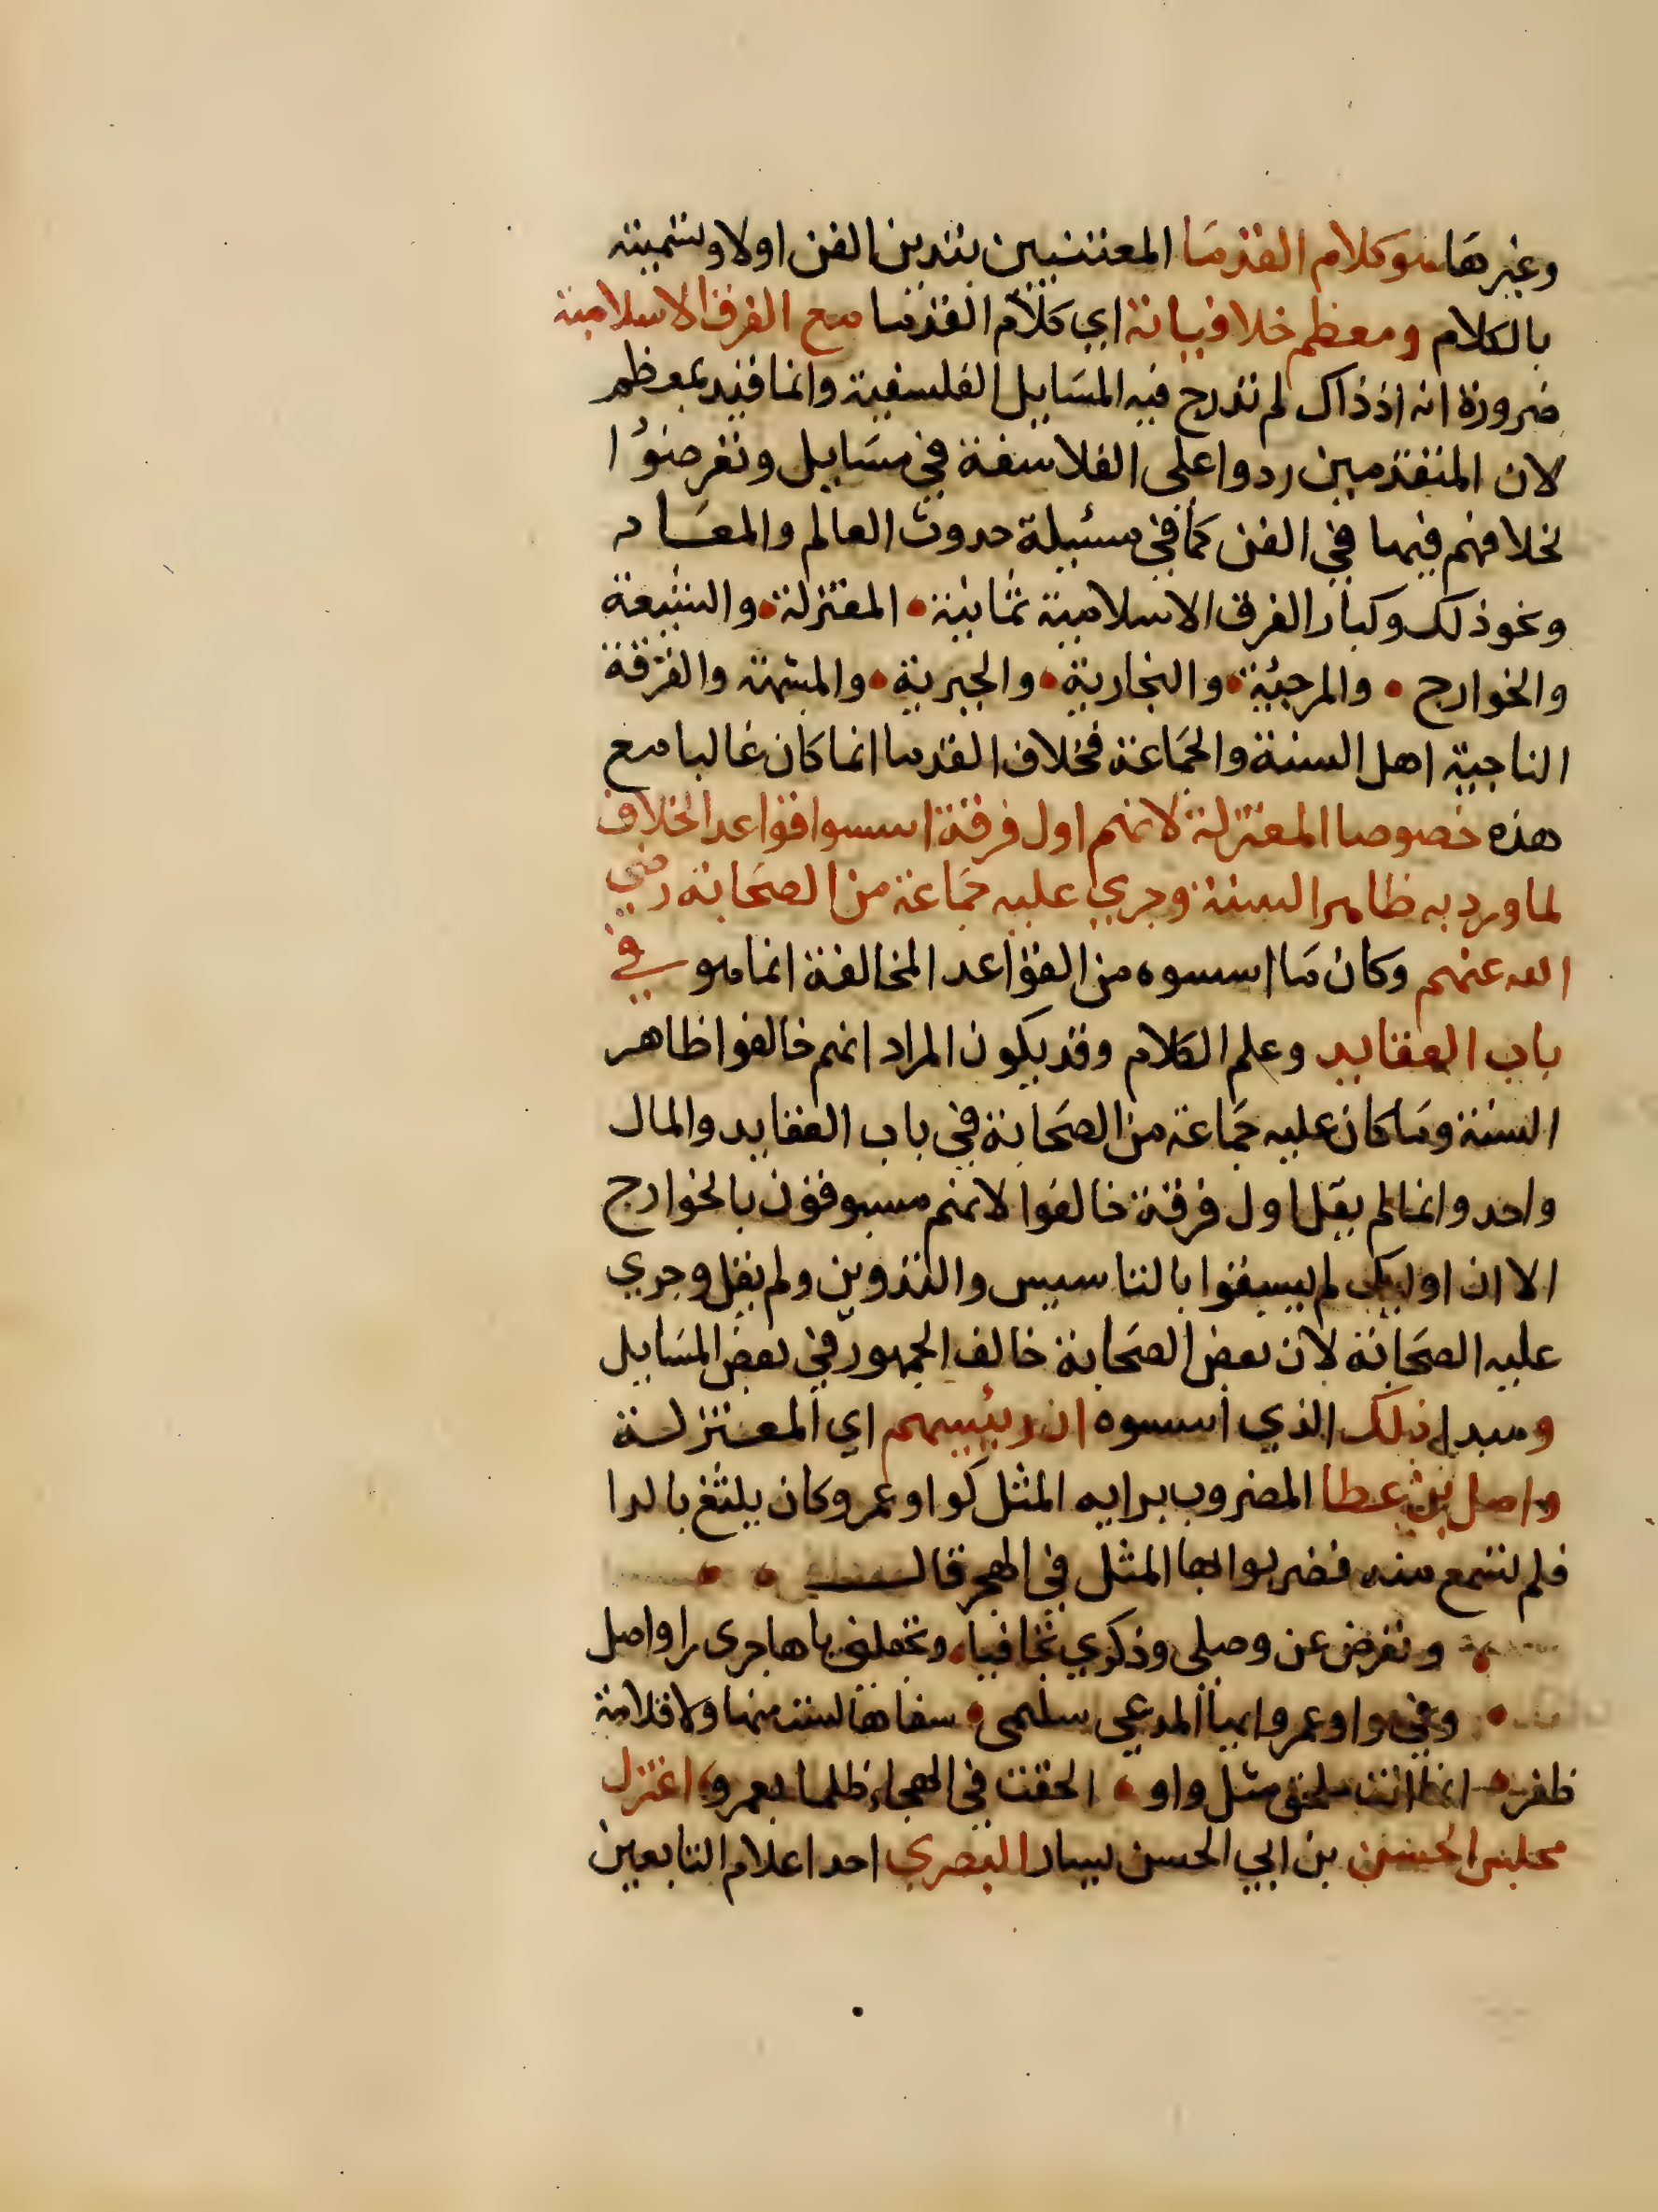 وغيرها هو كلام القدما المعتنيين بتدين الفن اولا وبتسميته
بالكلام ومعظم خلافياته اي كلام القدما مع الفرق الاسلامية
ضرورة انه اذ ذاك لم تدرج فيه المسايل الفلسفية وانما قيد بمعظم
لان المتقدمين ردوا على الفلاسفة في مسايل وتعرضوا
لخلافهم فيها في الفن كما في مسئيلة حدوث العالم والمعاد
ونحو ذلك وكبار الفرق الاسلامية ثمانية المعتزلة والشيعة
والخوارج والمرجئة والنجارية والجبرية والمشبهة والفرقة
الناجية اهل السنة والجماعة فخلاف القدما انما كان غالبا مع
هذه خصوصا المعتزلة لانهم اول فرقة اسسوا قواعد الخلاف
لما ورد به ظاهر السنة وجري عليه جماعة من الصحابة رضي
الله عنهم وكان ما اسسوه من القواعد المخالفة انما هو في
باب العقايد وعلم الكلام وقد يكون المراد انهم خالفوا ظاهر
السنة وما كان عليه جماعة من الصحابة في باب العقايد والمال
واحد وانما لم يقل اول فرقة خالفوا لانهم مسبوقون بالخوارج
الا ان اوليك لم يسبقوا بالتاسيس والتدوين ولم يقل وجري
عليه الصحابة لان بعض الصحابة خالف الجمهور في بعض المسايل
ومبدا ذلك الذي اسسوه ان رئيسهم اي المعتزلة
واصل بن عطا المضروب برايه المثل كواو عمرو وكان يلثغ بالرا
فلم تسمع منه فضربوا بها المثل في الهجر قال
وتعرض عن وصلي وذكري تجافيا وتجعلني يا هاجري را واصل
وفي واو عمرو ايها المدعي سليمى سفاها لست منها ولا قلامة
ظفر انما انت ملحق مثل واو الحقت في الهجاء ظلما بعمرو اعتزل
مجلس الحسن بن ابي الحسن يسار البصري احد اعلام التابعين